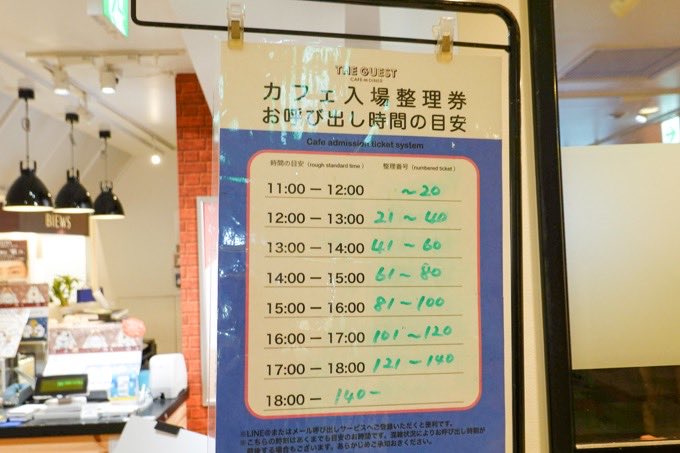 THE GUEST
CAFE & DINER
カフェ入場整理券
お呼び出し時間の目安
Cafe admission ticket system
時間の目安（rough standard time） 整理番号（numbered ticket）
11:00 — 12:00 〜20
12:00 — 13:00 21〜40
13:00 — 14:00 41〜60
14:00 — 15:00 61〜80
15:00 — 16:00 81〜100
16:00 — 17:00 101〜120
17:00 — 18:00 121〜140
18:00 — 140—
※LINE@またはメール呼び出しサービスへのご登録いただくと便利です。
※こちらの時刻はあくまでも目安のお時間です。混雑状況によりお呼び出し時間が
前後する場合もございます。あらかじめご承知おきください。
BIEWS